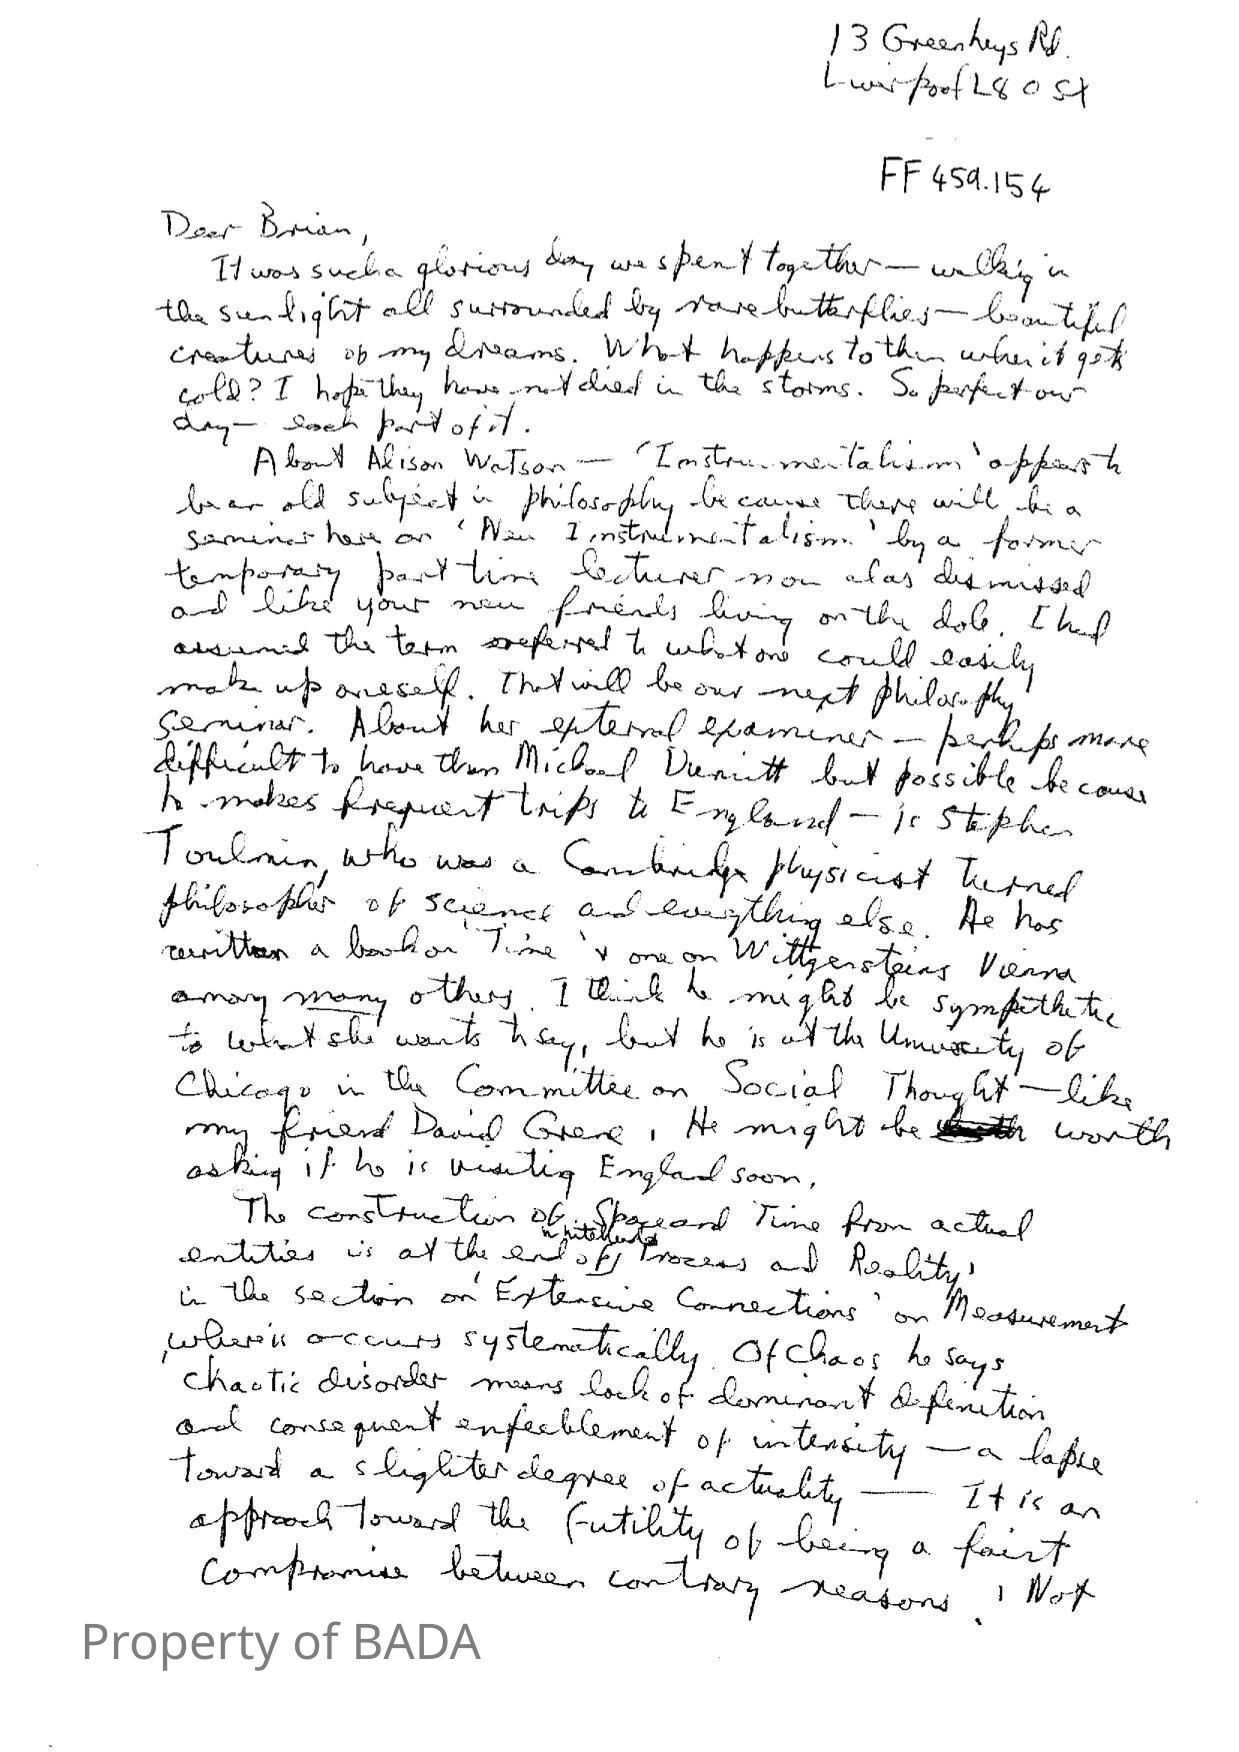 13 Greenheys Rd.
Liverpool L8 0SX
FF 459.154
Dear Brian,
It was such a glorious day we spent together — walking in
the sunlight all surrounded by rare butterflies — beautiful
creatures of my dreams. What happens to them when it gets
cold? I hope they have not died in the storms. So perfect our
day — each part of it.
About Alison Watson — 'Instrumentalism' appears to
be an old subject in philosophy because there will be a
seminar here on 'New Instrumentalism' by a former
temporary part time lecturer now alas dismissed
and like your new friends living on the dole. I had
assumed the term referred to what one could easily
make up oneself. That will be our next philosophy
seminar. About her external examiner — perhaps more
difficult to have than Michael but possible because
he makes frequent trips to England — is Stephen
Toulmin, who was a Cambridge physicist turned
philosopher of science and everything else. He has
written a book on 'Time' & one on Wittgensteins Vienna
among many others. I think he might be sympathetic
to what she wants to say, but he is at the University of
Chicago in the Committee on Social Thought — like
my friend David Grene. He might be worth
asking if he is visiting England soon.
The construction of Space and Time from actual
entities is at the end of Whiteheads 'Process and Reality'
in the section on 'Extensive Connections' on Measurement
, where is occurs systematically. Of Chaos he says
chaotic disorder means lack of dominant definition
and consequent enfeeblement of intensity — a lapse
toward a slighter degree of actuality — It is an
approach toward the futility of being a faint
compromise between contrary reasons.' Not
Property of BADA